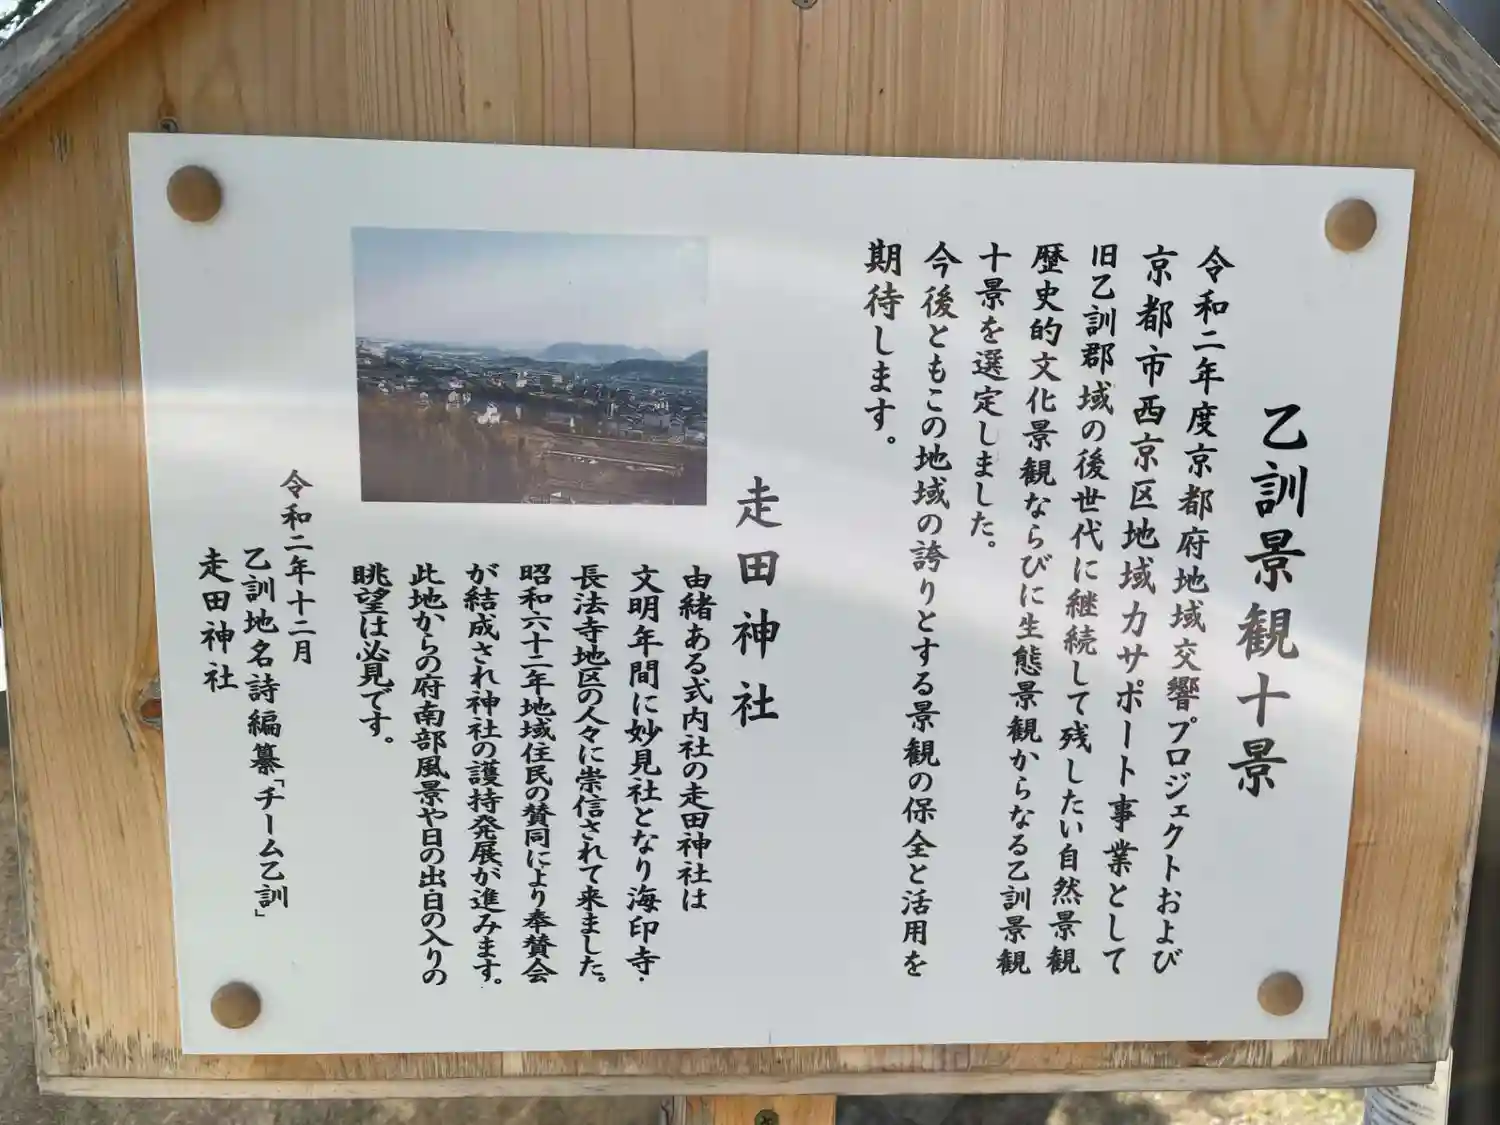 乙訓景観十景
令和二年度京都府地域交響プロジェクトおよび
京都市西京区地域力サポート事業として
旧乙訓郡域の後世代に継続して残したい自然景観
歴史的文化景観ならびに生態景観からなる乙訓景観
十景を選定しました。
今後ともこの地域の誇りとする景観の保全と活用を
期待します。
走田神社
由緒ある式内社の走田神社は
文明年間に妙見社となり海印寺・
長法寺地区の人々に崇信されて来ました。
昭和六十二年地域住民の賛同により奉賛会
が結成され神社の護持発展が進みます。
此地からの府南部風景や日の出・日の入りの
眺望は必見です。
令和二年十二月
乙訓地名詩編纂「チーム乙訓」
走田神社